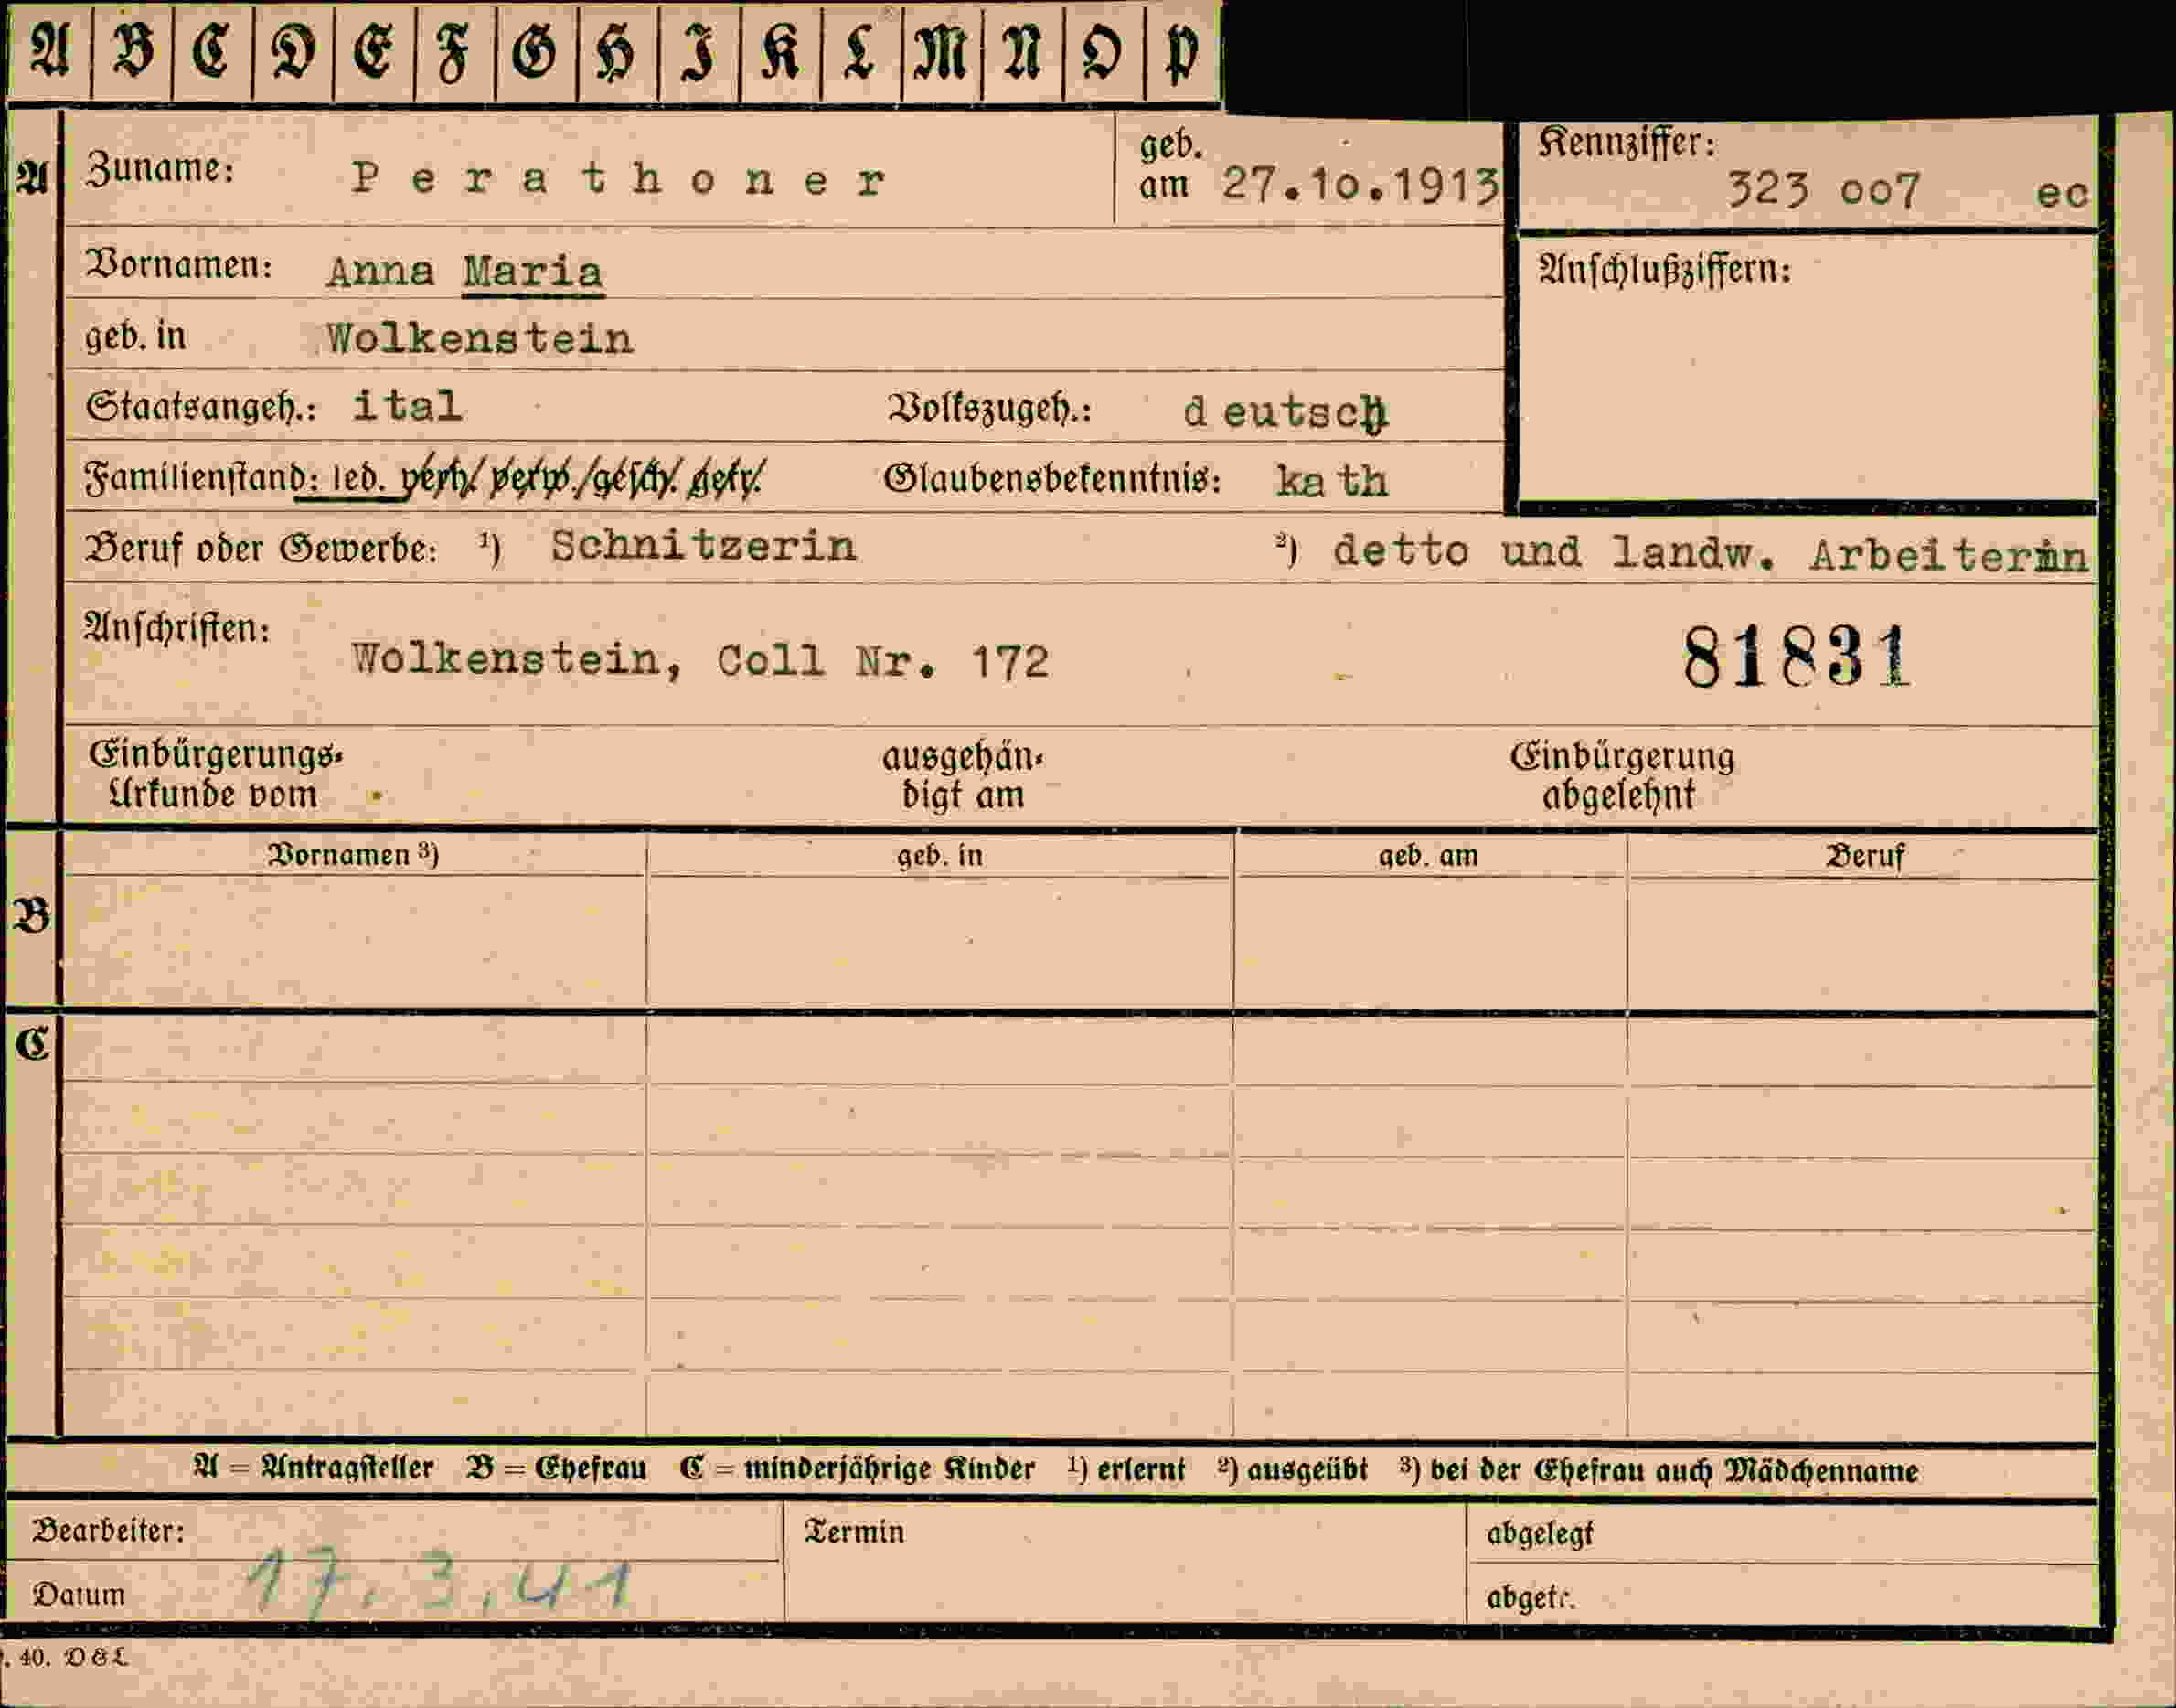 A B C D E F G H I K L M N O P
A Zuname: Perathoner geb. am 27.10.1913 Kennziffer: 323 007 ec
Vornamen: Anna Maria Anschlußziffern:
geb. in Wolkenstein
Staatsangeh.: ital Volkszugeh.: deutsch
Familienstand: led. verh./verw./gesch./getr. Glaubensbekenntnis: kath
Beruf oder Gewerbe: ¹) Schnitzerin ²) detto und landw. Arbeiterin
Anschriften: Wolkenstein, Coll Nr. 172 81831
Einbürgerungs- ausgehän- Einbürgerung
Urkunde vom digt am abgelehnt
Vornamen ³) geb. in geb. am Beruf
B
C
A = Antragsteller B = Ehefrau C = minderjährige Kinder ¹) erlernt ²) ausgeübt ³) bei der Ehefrau auch Mädchenname
Bearbeiter: Termin abgelegt
Datum 17.3.41 abgetr.
. 40. D & L